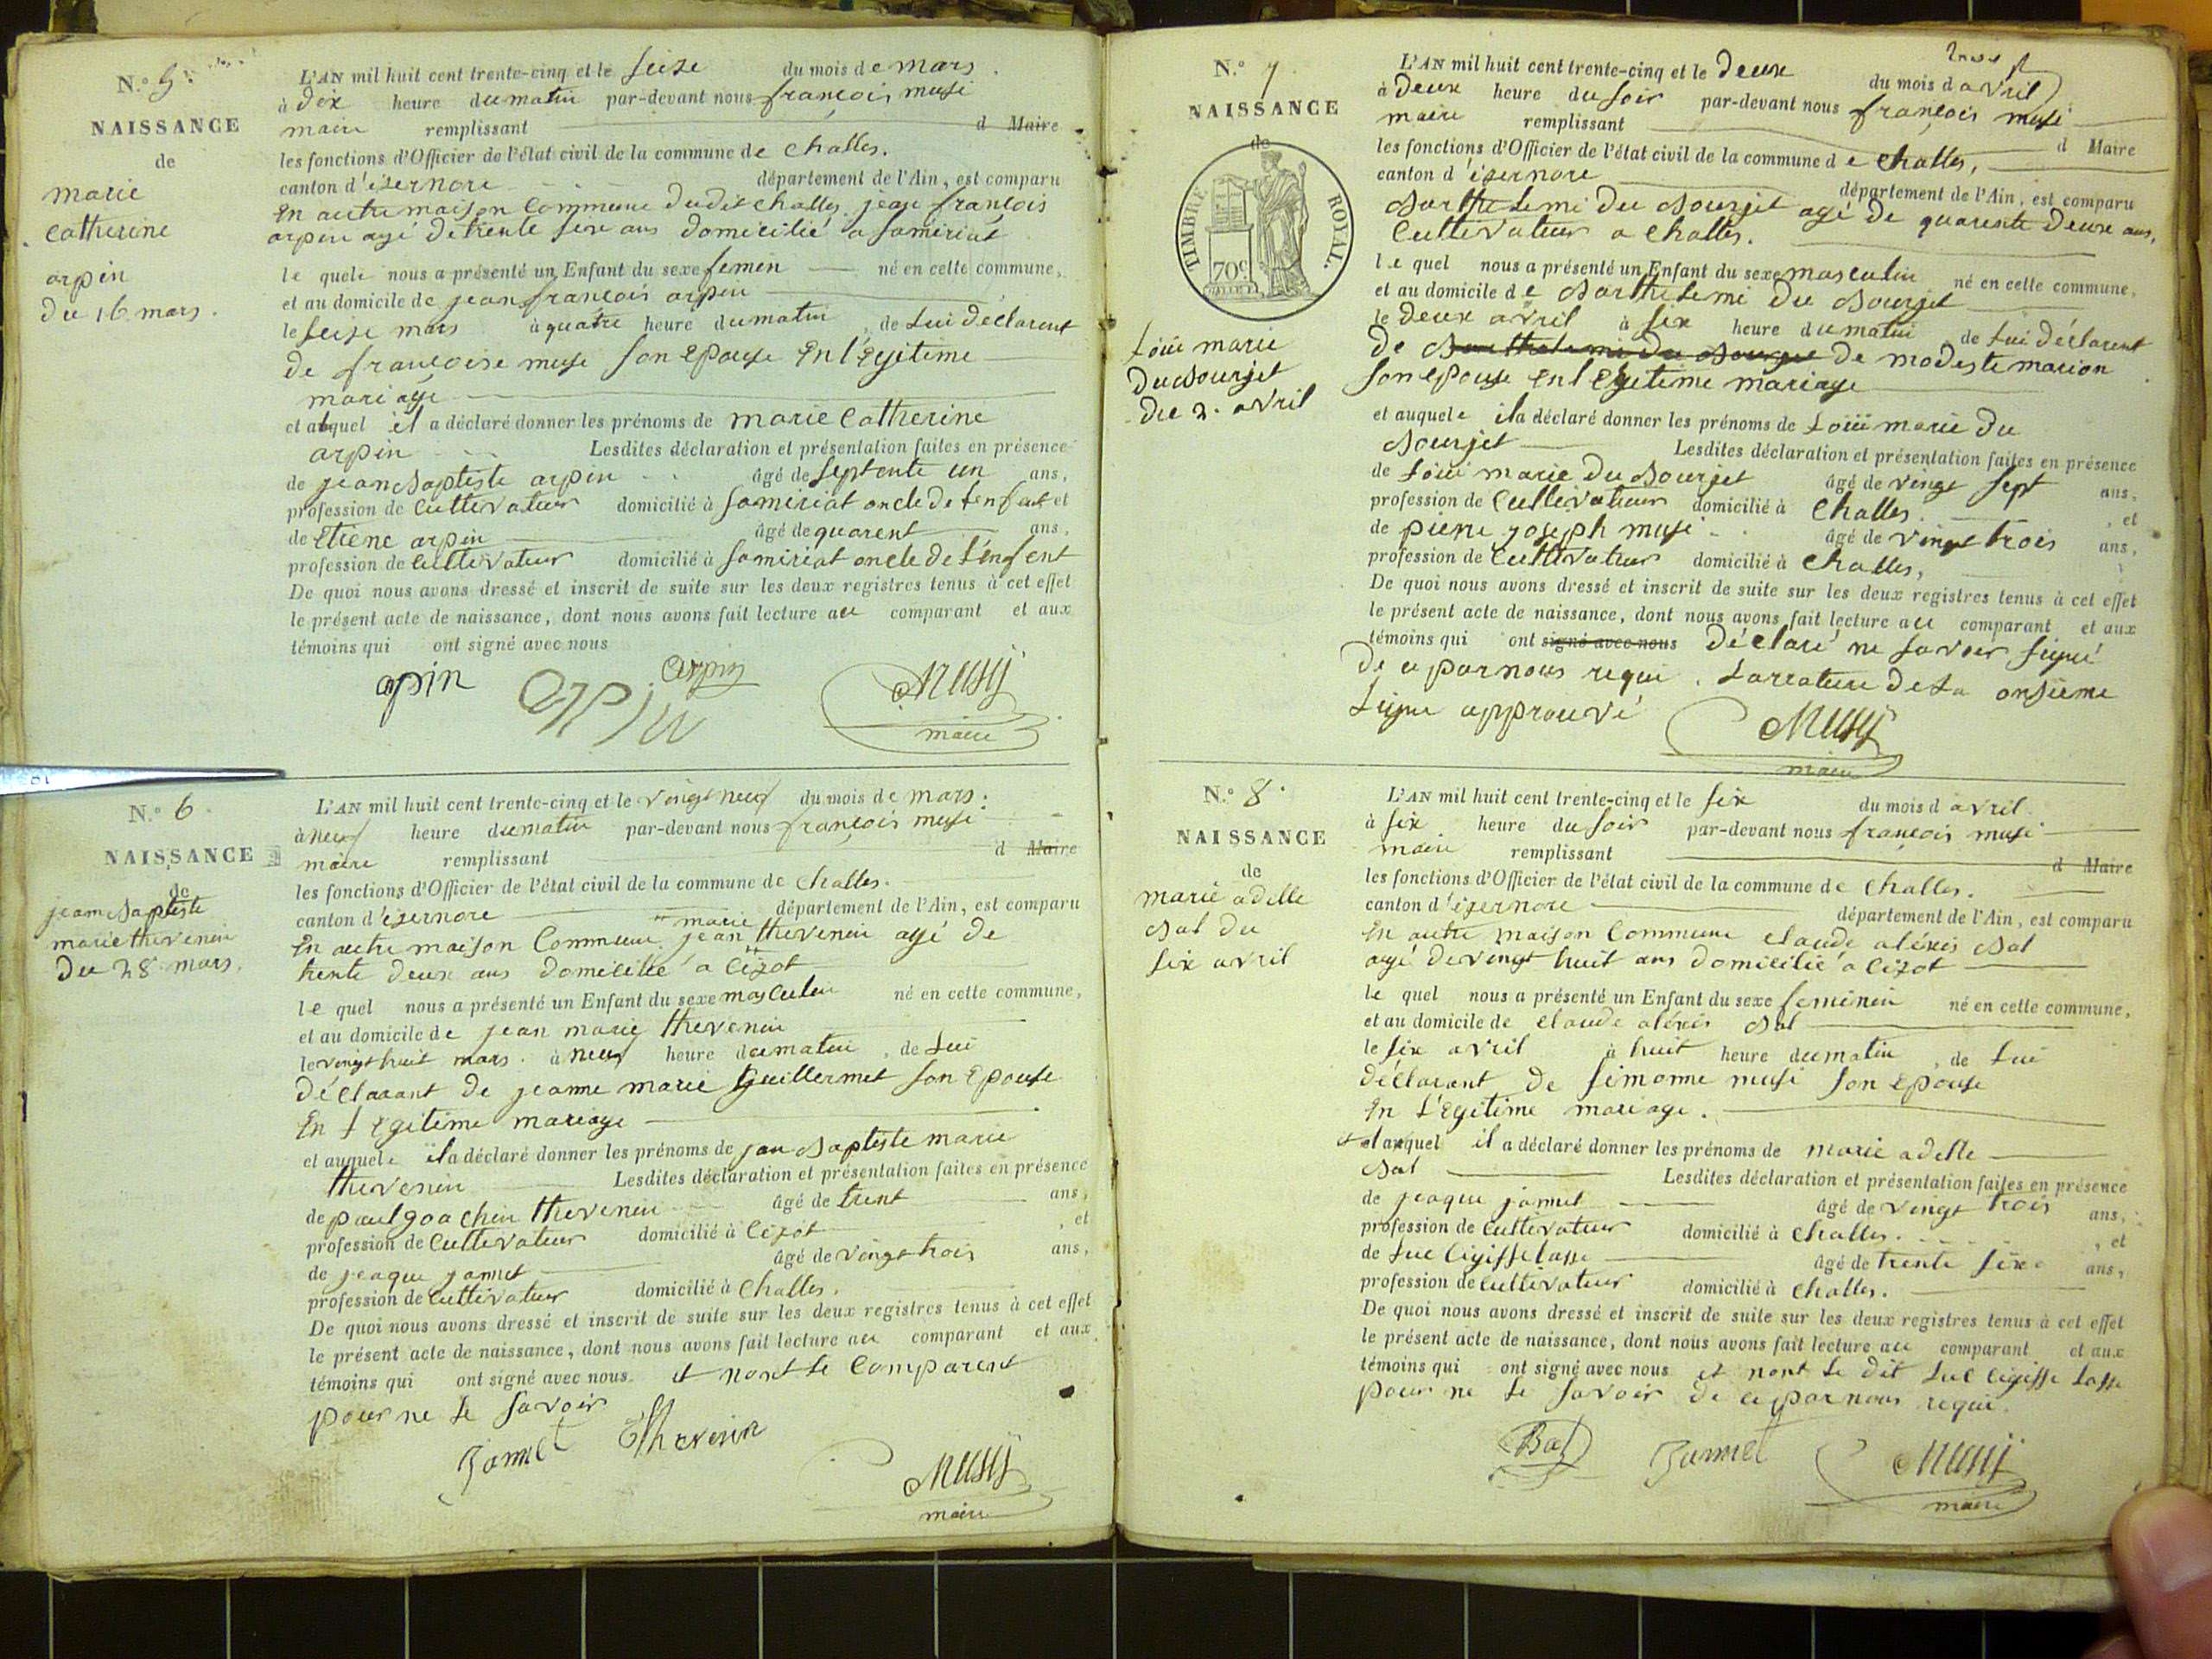 N.° 5.
NAISSANCE
de
marie
catherine
arpin
du 16 mars.
L'AN mil huit cent trente-cinq et le seize du mois de mars.
à dix heure du matin par-devant nous françois musi
maire remplissant d Maire
les fonctions d'Officier de l'état civil de la commune de Challes.
canton d'izernore département de l'Ain, est comparu
En autre maison Commune dudit Challes. jean françois
arpin agé de trente six ans domicilié a samiriat
le quele nous a présenté un Enfant du sexe femen né en cette commune,
et au domicile de jean françois arpin
le seize mars à quatre heure du matin, de Lui déclarent
de françoise muse son epouse En l'Egitime
mariage
et alquel il a déclaré donner les prénoms de marie Catherine
arpin Lesdites déclaration et présentation faites en présence
de jean Baptiste arpin âgé de septente un ans,
profession de Cultivateur domicilié à samiriat oncle de lenfent et
de Etiene arpin âgé de quarent ans,
profession de Cultivateur domicilié à samiriat oncle de l'enfent
De quoi nous avons dressé et inscrit de suite sur les deux registres tenus à cet effet
le présent acte de naissance, dont nous avons fait lecture au comparant et aux
témoins qui ont signé avec nous
apin arpin arpin Musy
maire
N.° 6.
NAISSANCE
de
jean Baptiste
marie thevenin
Du 28 mars.
L'AN mil huit cent trente-cinq et le vingt neuf du mois de mars.
à neuf heure du matin par-devant nous françois musi
maire remplissant d Maire
les fonctions d'Officier de l'état civil de la commune de Challes.
canton d'izernore département de l'Ain, est comparu
marie
En autre maison Commune. jean thevenin agé de
trente deux ans domicilié a Cizot
le quel nous a présenté un Enfant du sexe masculin né en cette commune,
et au domicile de jean marie thevenin
le vingt huit mars. à neuf heure du matin, de Lui
déclarant de jeanne marie Guillermet son Epouse
En l Egitime mariage
et auquele il a déclaré donner les prénoms de jan Baptiste marie
thevenin Lesdites déclaration et présentation faites en présence
de paul goachin thevenin âgé de trent ans,
profession de Cultivateur domicilié à Cizot, et
de jeaque jamet âgé de vingt trois ans,
profession de Cultivateur domicilié à Challes.
De quoi nous avons dressé et inscrit de suite sur les deux registres tenus à cet effet
le présent acte de naissance, dont nous avons fait lecture au comparant et aux
témoins qui ont signé avec nous et nont le Comparent
pour ne le savoir
Jamet Thevenin
Musy
maire
N.° 7
NAISSANCE
de
TIMBRE ROYAL.
70c
Loüi marie
Du Bourjet
du 2. avril
L'AN mil huit cent trente-cinq et le Deux du mois d avril
à Deux heure du soir par-devant nous françois musi
maire remplissant d Maire
les fonctions d'Officier de l'état civil de la commune d e Challes,
canton d'izernore département de l'Ain, est comparu
Barthelemi Du Bourjet agé de quarente Deux ans,
Cultivateur a Challes.
le quel nous a présenté un Enfant du sexe masculin né en cette commune,
et au domicile d e Barthelemi Du Bourjet
le Deux avril à six heure du matin de Lui déclarent
de Barthelemi Du Bourget de modeste marion
son epouse en l Egitime mariage
et auquele il a déclaré donner les prénoms de Loüi marie Du
Bourjet Lesdites déclaration et présentation faites en présence
de Loüi marie Du Bourjet âgé de vingt sept ans,
profession de Cultivateur domicilié à Challes, et
de pierre joseph musi âgé de vingt trois ans,
profession de Cultivateur domicilié à Challes,
De quoi nous avons dressé et inscrit de suite sur les deux registres tenus à cet effet
le présent acte de naissance, dont nous avons fait lecture au comparant et aux
témoins qui ont signé avec nous Déclaré ne savoir signé
De ce par nous requi. Larrature de La onsieme
Ligne approuvé Musy
maire
N.° 8.
NAISSANCE
de
marie adelle
Bal du
six avril
L'AN mil huit cent trente-cinq et le six du mois d avril
à six heure du soir par-devant nous françois musi
maire remplissant d Maire
les fonctions d'Officier de l'état civil de la commune de Challes.
canton d'izernore département de l'Ain, est comparu
En autre maison Commune claude aléxis Bal
agé de vingt huit ans domicilié a Cizot
le quel nous a présenté un Enfant du sexe feminin né en cette commune,
et au domicile de claude aléxis Bal
le six avril à huit heure du matin, de Lui
déclarant de simonne musi son epouse
En L'Egitime mariage.
et auquel il a déclaré donner les prénoms de marie adelle
Bal Lesdites déclaration et présentation faites en présence
de jeaque jamet âgé de vingt trois ans,
profession de Cultivateur domicilié à Challes., et
de Luc Ligisse Lasse âgé de trente six ans,
profession de Cultivateur domicilié à Challes.
De quoi nous avons dressé et inscrit de suite sur les deux registres tenus à cet effet
le présent acte de naissance, dont nous avons fait lecture au comparant et aux
témoins qui ont signé avec nous et nont Le dit Luc Ligisse Lasse
pour ne le savoir de ce par nous requi.
Bal Jamet Musy
maire